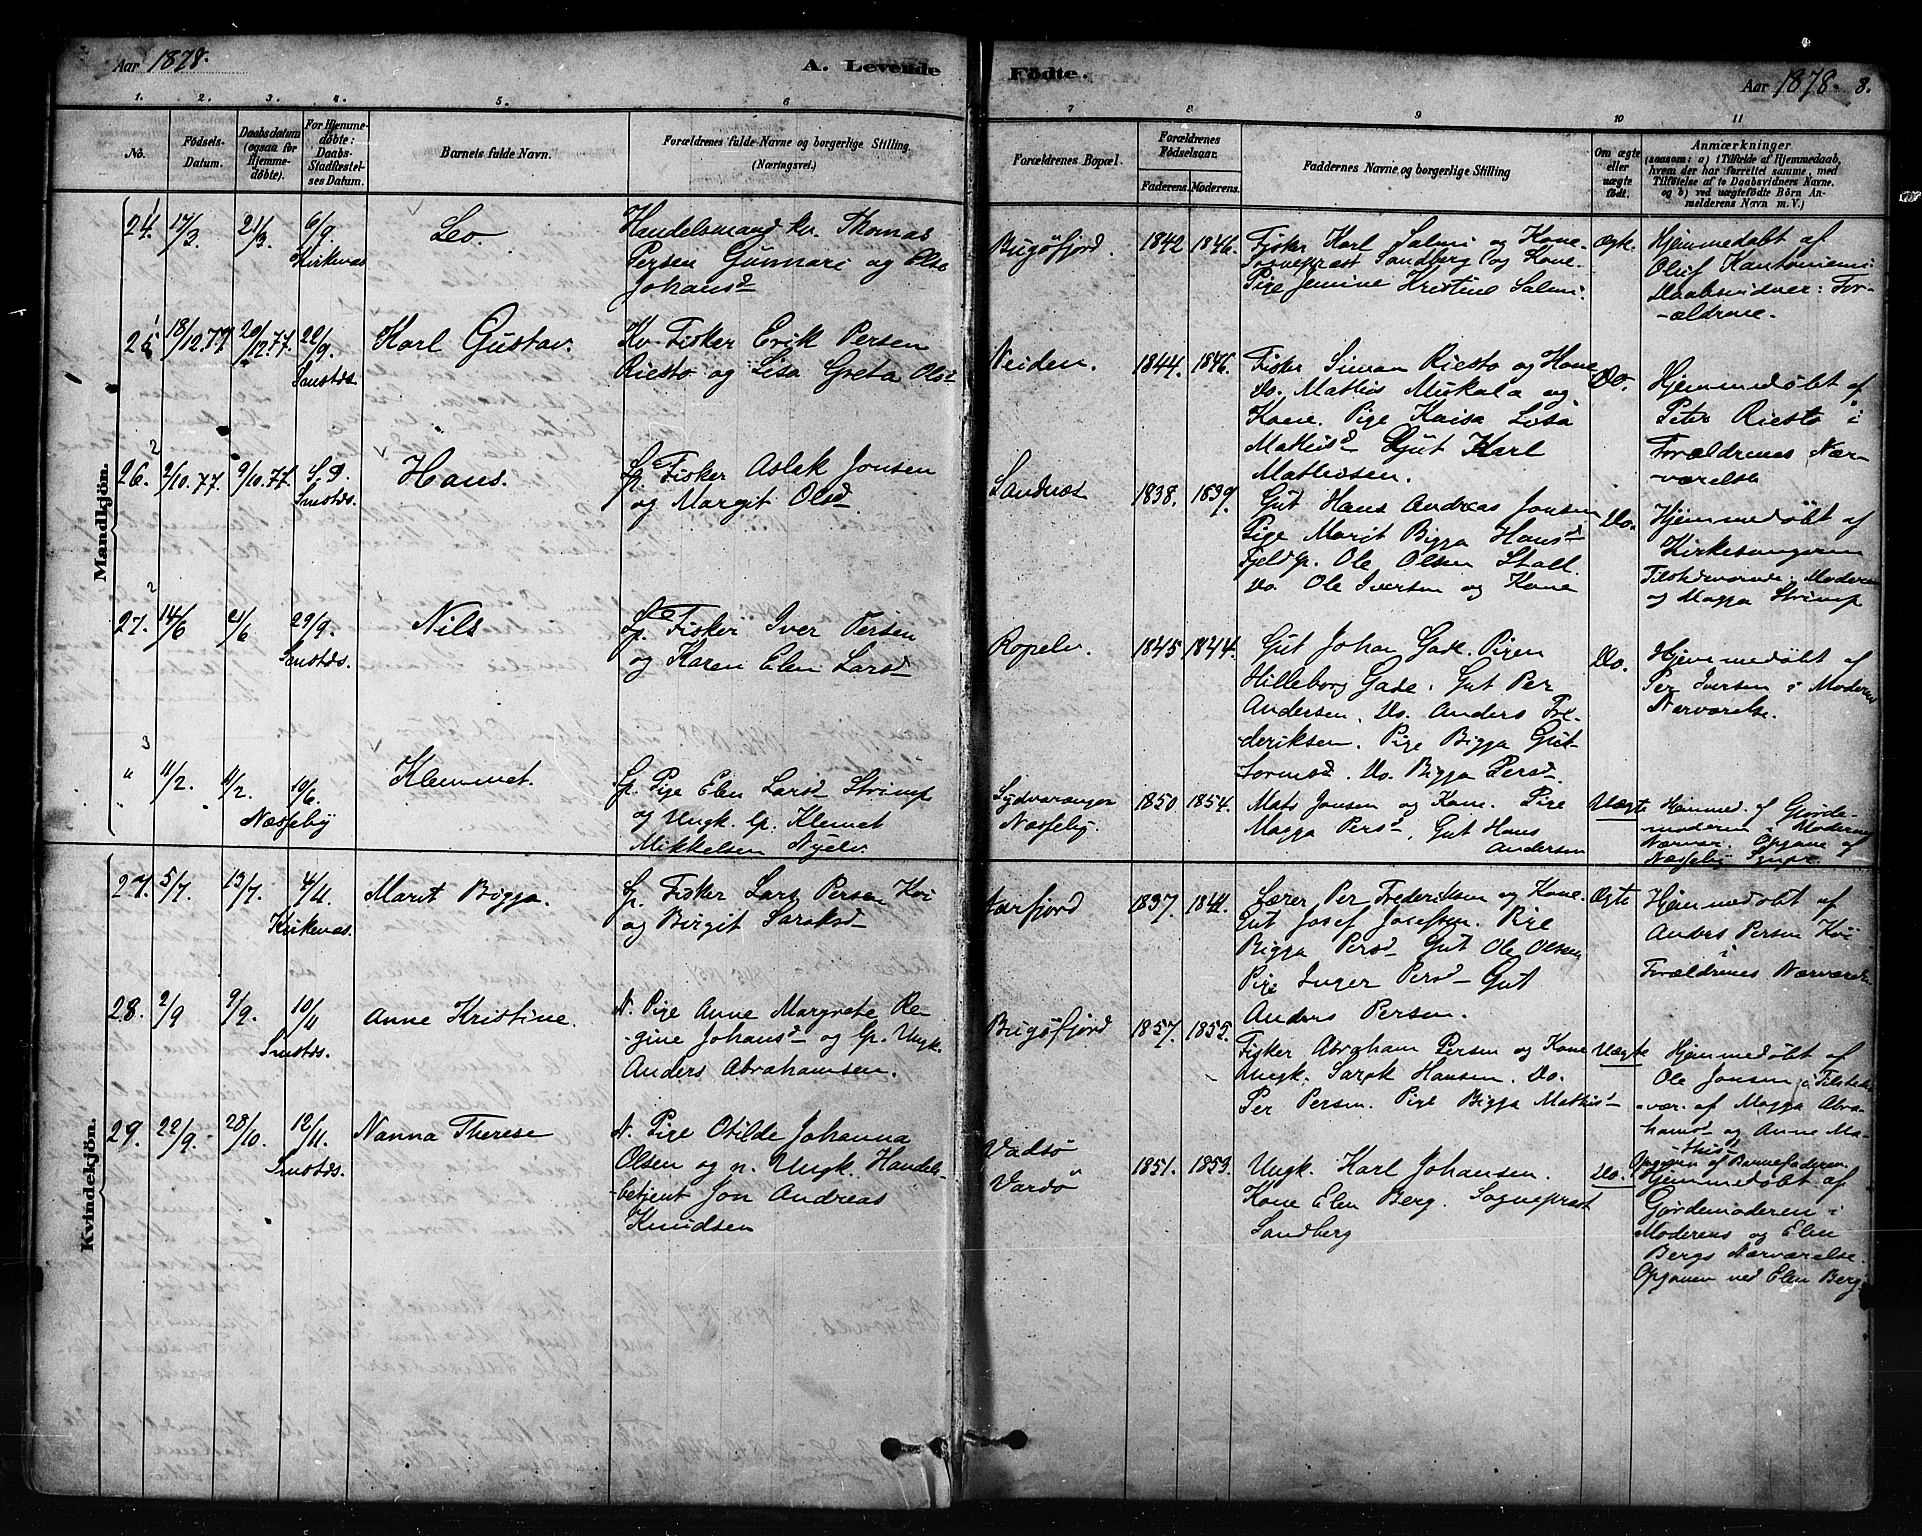 Aar 1878.
A. Levende
Fødte.
Aar 1878. 8.
1. 2. 3. 4. 5. 6 7 8 9 10 11
No.
Fødsels-
Datum.
Daabsdatum
(ogsaa for
Hjemme-
døbte).
For Hjemme-
døbte:
Daabs-
Stadfæstel-
ses Datum.
Barnets fulde Navn.
Forældrenes fulde Navne og borgerlige Stilling,
(Næringsvei.)
Forældrenes Bopæl.
Forældrenes
Fødselsaar.
Faderens. Moderens.
Faddernes Navne og borgerlige Stilling
Om ægte
eller
uægte
født.
Anmærkninger
(saasom: a) i Tilfælde af Hjemmedaab,
hvem der har forrettet samme, med
Tilføielse af to Daabsvidners Navne,
og b) ved uægtefødte Børn An-
melderens Navn m. V.)
Mandkjön.
24. 17/3 21/3 6/9 Kirkenæs
Leo.
Handelsmand kv. Thomas
Persen Gunnari og Else
Johansd
Bugöfjord. 1842 1846.
Fisker Karl Salmi og Kone.
Sogneprest Sandberg og Kone.
Pige Jemine Kristine Salmi.
Ægte.
Hjemmedøbt af
Oluf Kantoniemi
Daabsvidner: For-
-ældrene.
25. 18/12.77. 29/12.77. 22/9. Smstds
Karl Gustav.
Kv. Fisker Erik Persen
Riesto og Lisa Greta Olsd
Neiden. 1844. 1846.
Fisker Siman Riesto og Kone
Do. Mathis Mukala og
Kone. Pige Kaisa Lisa
Mathisd Gut Karl
Mathisen.
Do.
Hjemmedøbt af
Peter Riesto i
Forældrenes Nær-
værelse
26. 2/10.77. 9/10.77. S.D. Smstds.
Hans.
Lp. Fisker Aslak Jonsen
og Margit Olsd.
Sandnæs 1838. 1839.
Gut Hans Andreas Jonsen
Pige Marit Bigga Hansd
Fjeldlp. Ole Olsen Stall.
Do. Ole Iversen og Kone
Do.
Hjemmedøbt af
Kirkesangeren
Tilstedeværende: Moderen
og Magga Strimp
27. 14/6 21/6 29/9. Smstds.
Nils
Lp. Fisker Iver Persen
og Karen Elen Larsd
Ropelv. 1845 1844.
Gut Johan Gade. Pigen
Hilleborg Gade. Gut Per
Andersen. Do. Anders Fre-
deriksen. Pige Bigga Gut-
tormsd. Do. Bigga Persd.
Do.
Hjemmedøbt af
Per Iversen i Moderens
Nærværelse.
" 11/2. 11/2. 10/6. Næsseby
Klemmet.
Lp. Pige Elen Larsd Strimp
og Ungk. lp. Klemet
Mikkelsen Nyelv.
Sydvaranger
Næsseby. 1850 1854.
Mats Jonsen og Kone. Pige
Magga Persd, Gut Hans
Andersen
Uægte
Hjemmed. af Gjorde-
moderen i Moderens
Nærvær. Opgave af
Næsseby Sognepr.
Kvindekjön.
27. 5/7. 13/7. 4/11. Kirkenæs.
Marit Bigga.
Lp. Fisker Lars Persen Koi
og Birgit Saraksd
Jarfjord 1837. 1844.
Lærer Per Frederiksen og Kone.
Gut Josef Josefsen. Pige
Bigga Persd Gut Ole Olsen
Pige Inger Persd Gut
Anders Persen.
Ægte
Hjemmedøbt af
Anders Persen Koi
i
Forældrenes Nærværelse.
28. 2/9 9/9. 10/11 Smstds.
Anne Kristine.
N. Pige Anne Margrete Re-
gine Johansd og lp. Ungk.
Anders Abrahamsen.
Bugöfjord 1857. 1855.
Fisker Abraham Persen og Kone
Ungk. Sarok Hansen. Do.
Per Persen. Pige Bigga Mathisd
Uægte
Hjemmedøbt af
Ole Jonsen i Tilstede-
vær. af Magga Abra-
hamsd og Anne Ma-
-thisd
Opgaven af Barnefaderen.
29. 22/9. 20/10. 12/11. Smstds.
Nanna Therese
N. Pige Otilde Johanna
Olsen og n. Ungk. Handels-
betjent Jon Andreas
Knudsen
Vadsö
Vardö 1851. 1853.
Ungk. Karl Johansen.
Kone Elen Berg. Sogneprest
Sandberg
Do.
Hjemmedøbt af
Gjordemoderen i
Moderens og Elen
Bergs Nærværelse.
Opgaven ved Elen Berg.